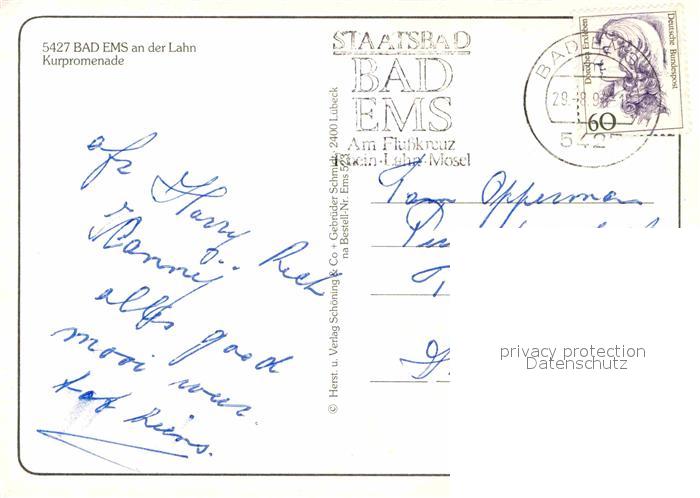 5427 BAD EMS an der Lahn
Kurpromenade
STAATSBAD
BAD
EMS
Am Flußkreuz
Rhein-Lahn-Mosel
BAD EMS
29.-8.9
5427
Dorothea Erxleben
Deutsche Bundespost
60
© Herst. u. Verlag Schöning & Co + Gebrüder Schmidt, 2400 Lübeck
na Bestell-Nr. Ems 5
Harry
Hannij
alles goed
mooi weer.
tot ziens.
Fam Opperman
privacy protection
Datenschutz